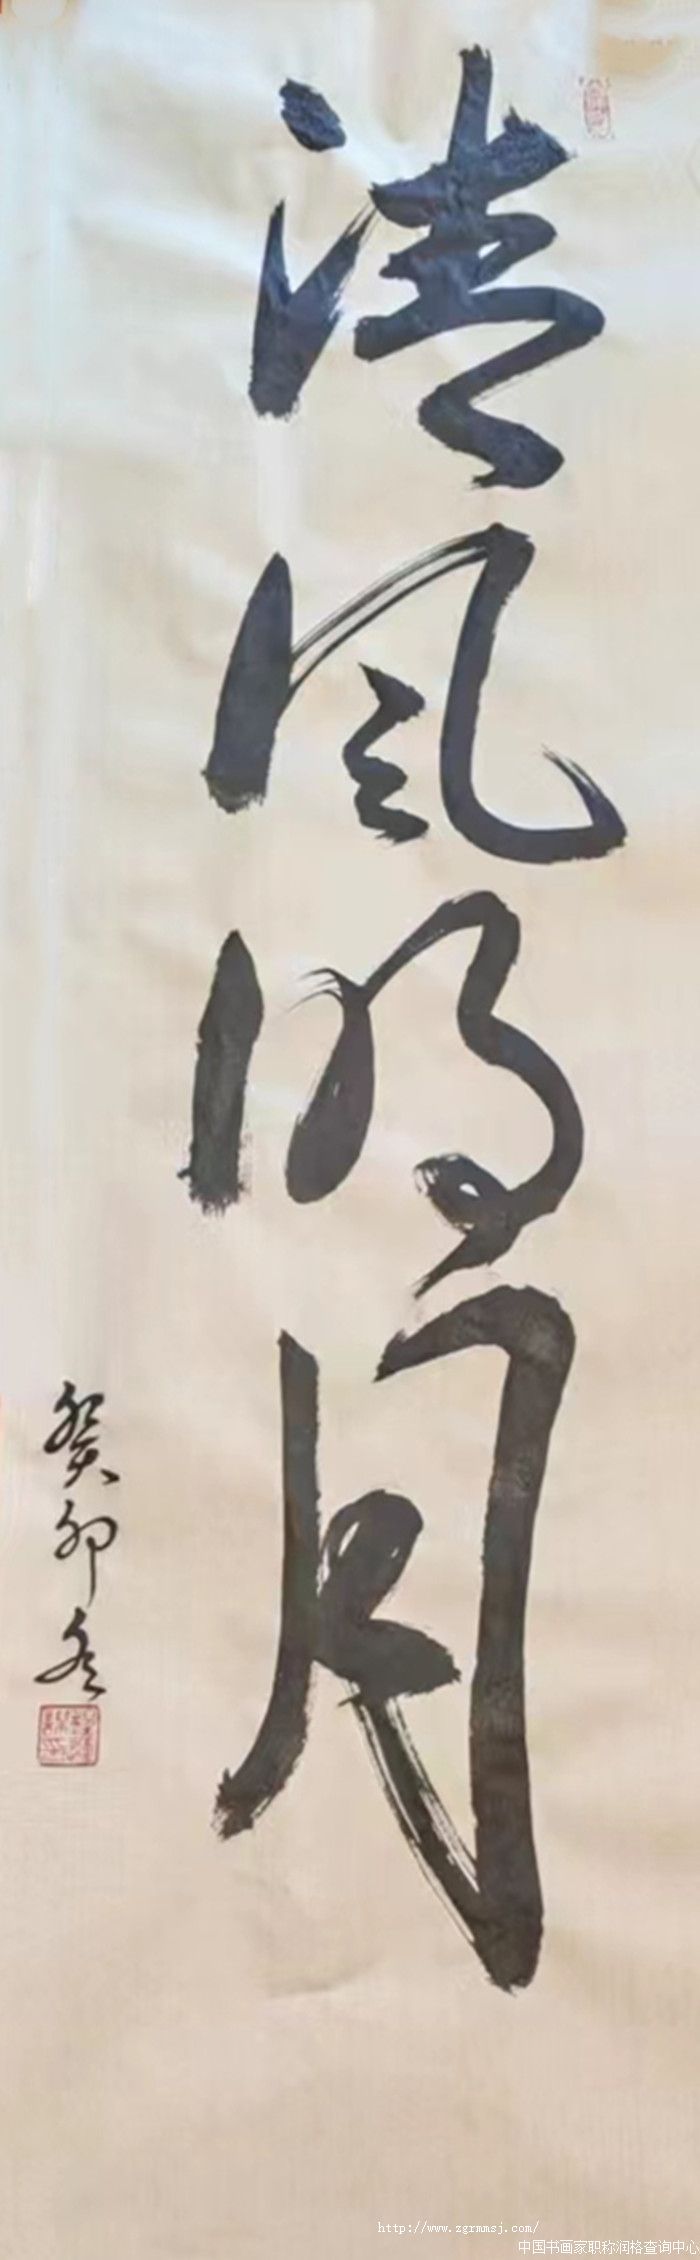 清风明月
癸卯冬
http://www.zgrmmsj.com/
中国书画家职称润格查询中心